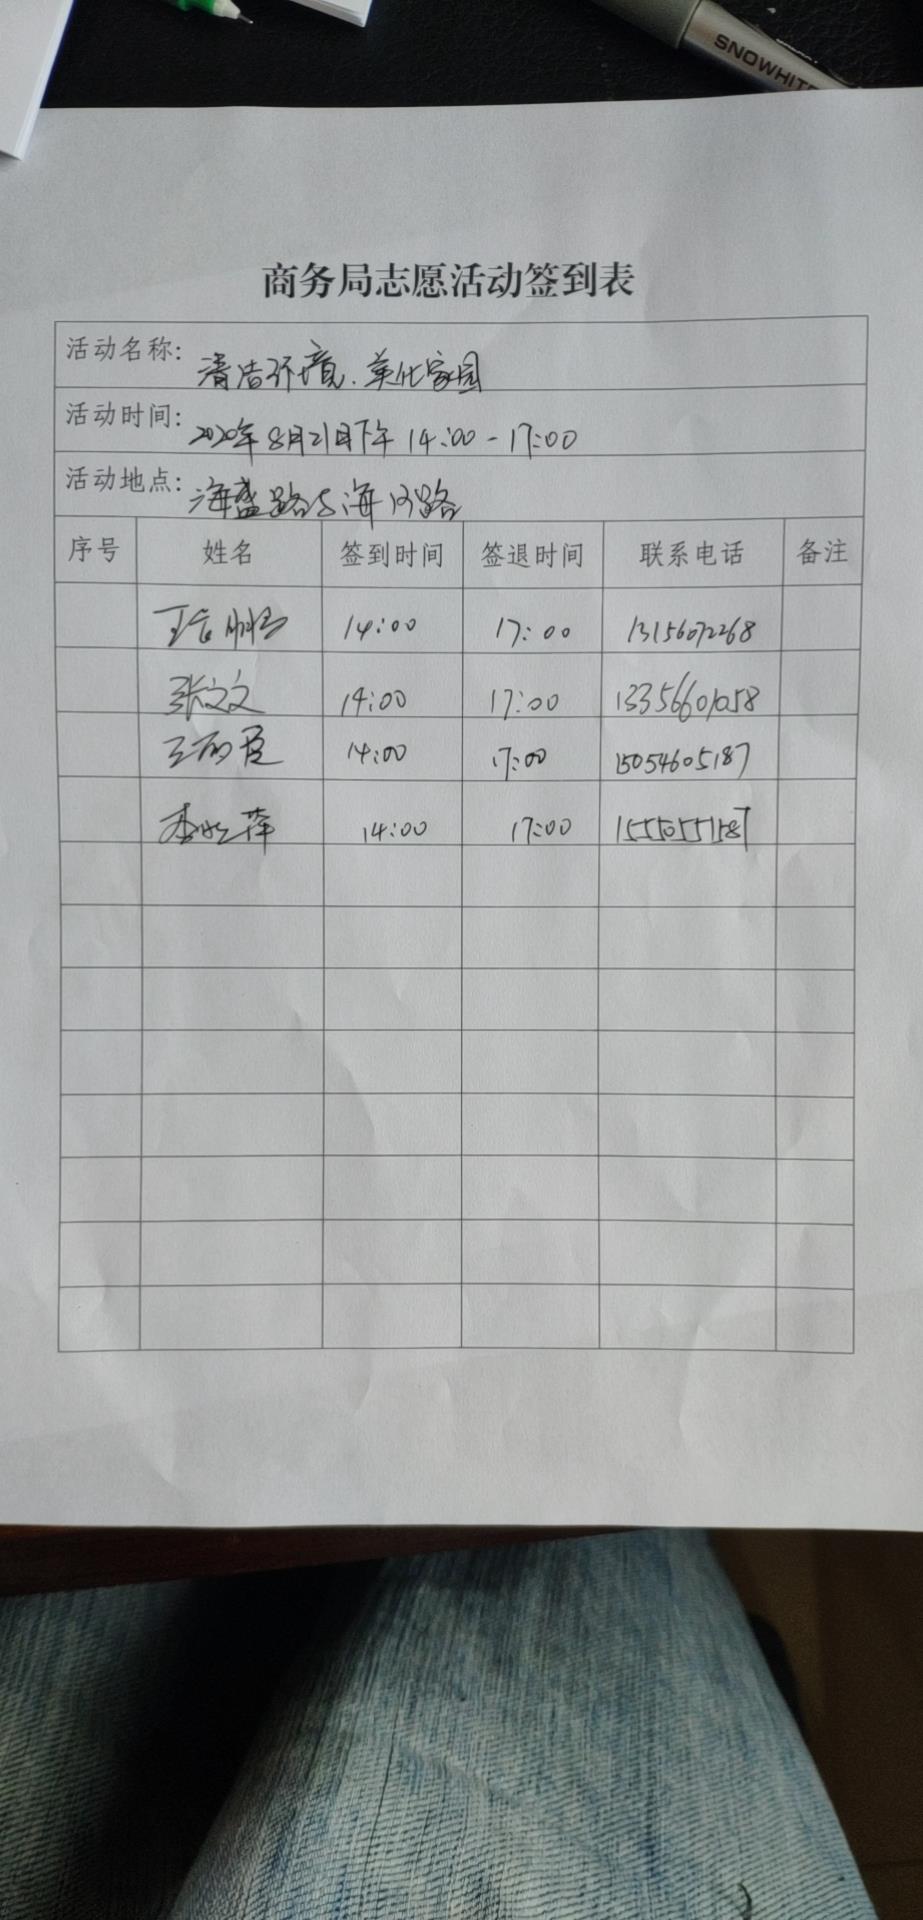 SNOWHITE
商务局志愿活动签到表
活动名称: 清洁环境.美化家园
活动时间: 2020年8月21日下午 14:00-17:00
活动地点: 海盛路与海河路
序号 姓名 签到时间 签退时间 联系电话 备注
14:00 17:00 13156072268
张文文 14:00 17:00 13356601058
14:00 17:00 15054605187
李 萍 14:00 17:00 15550551587